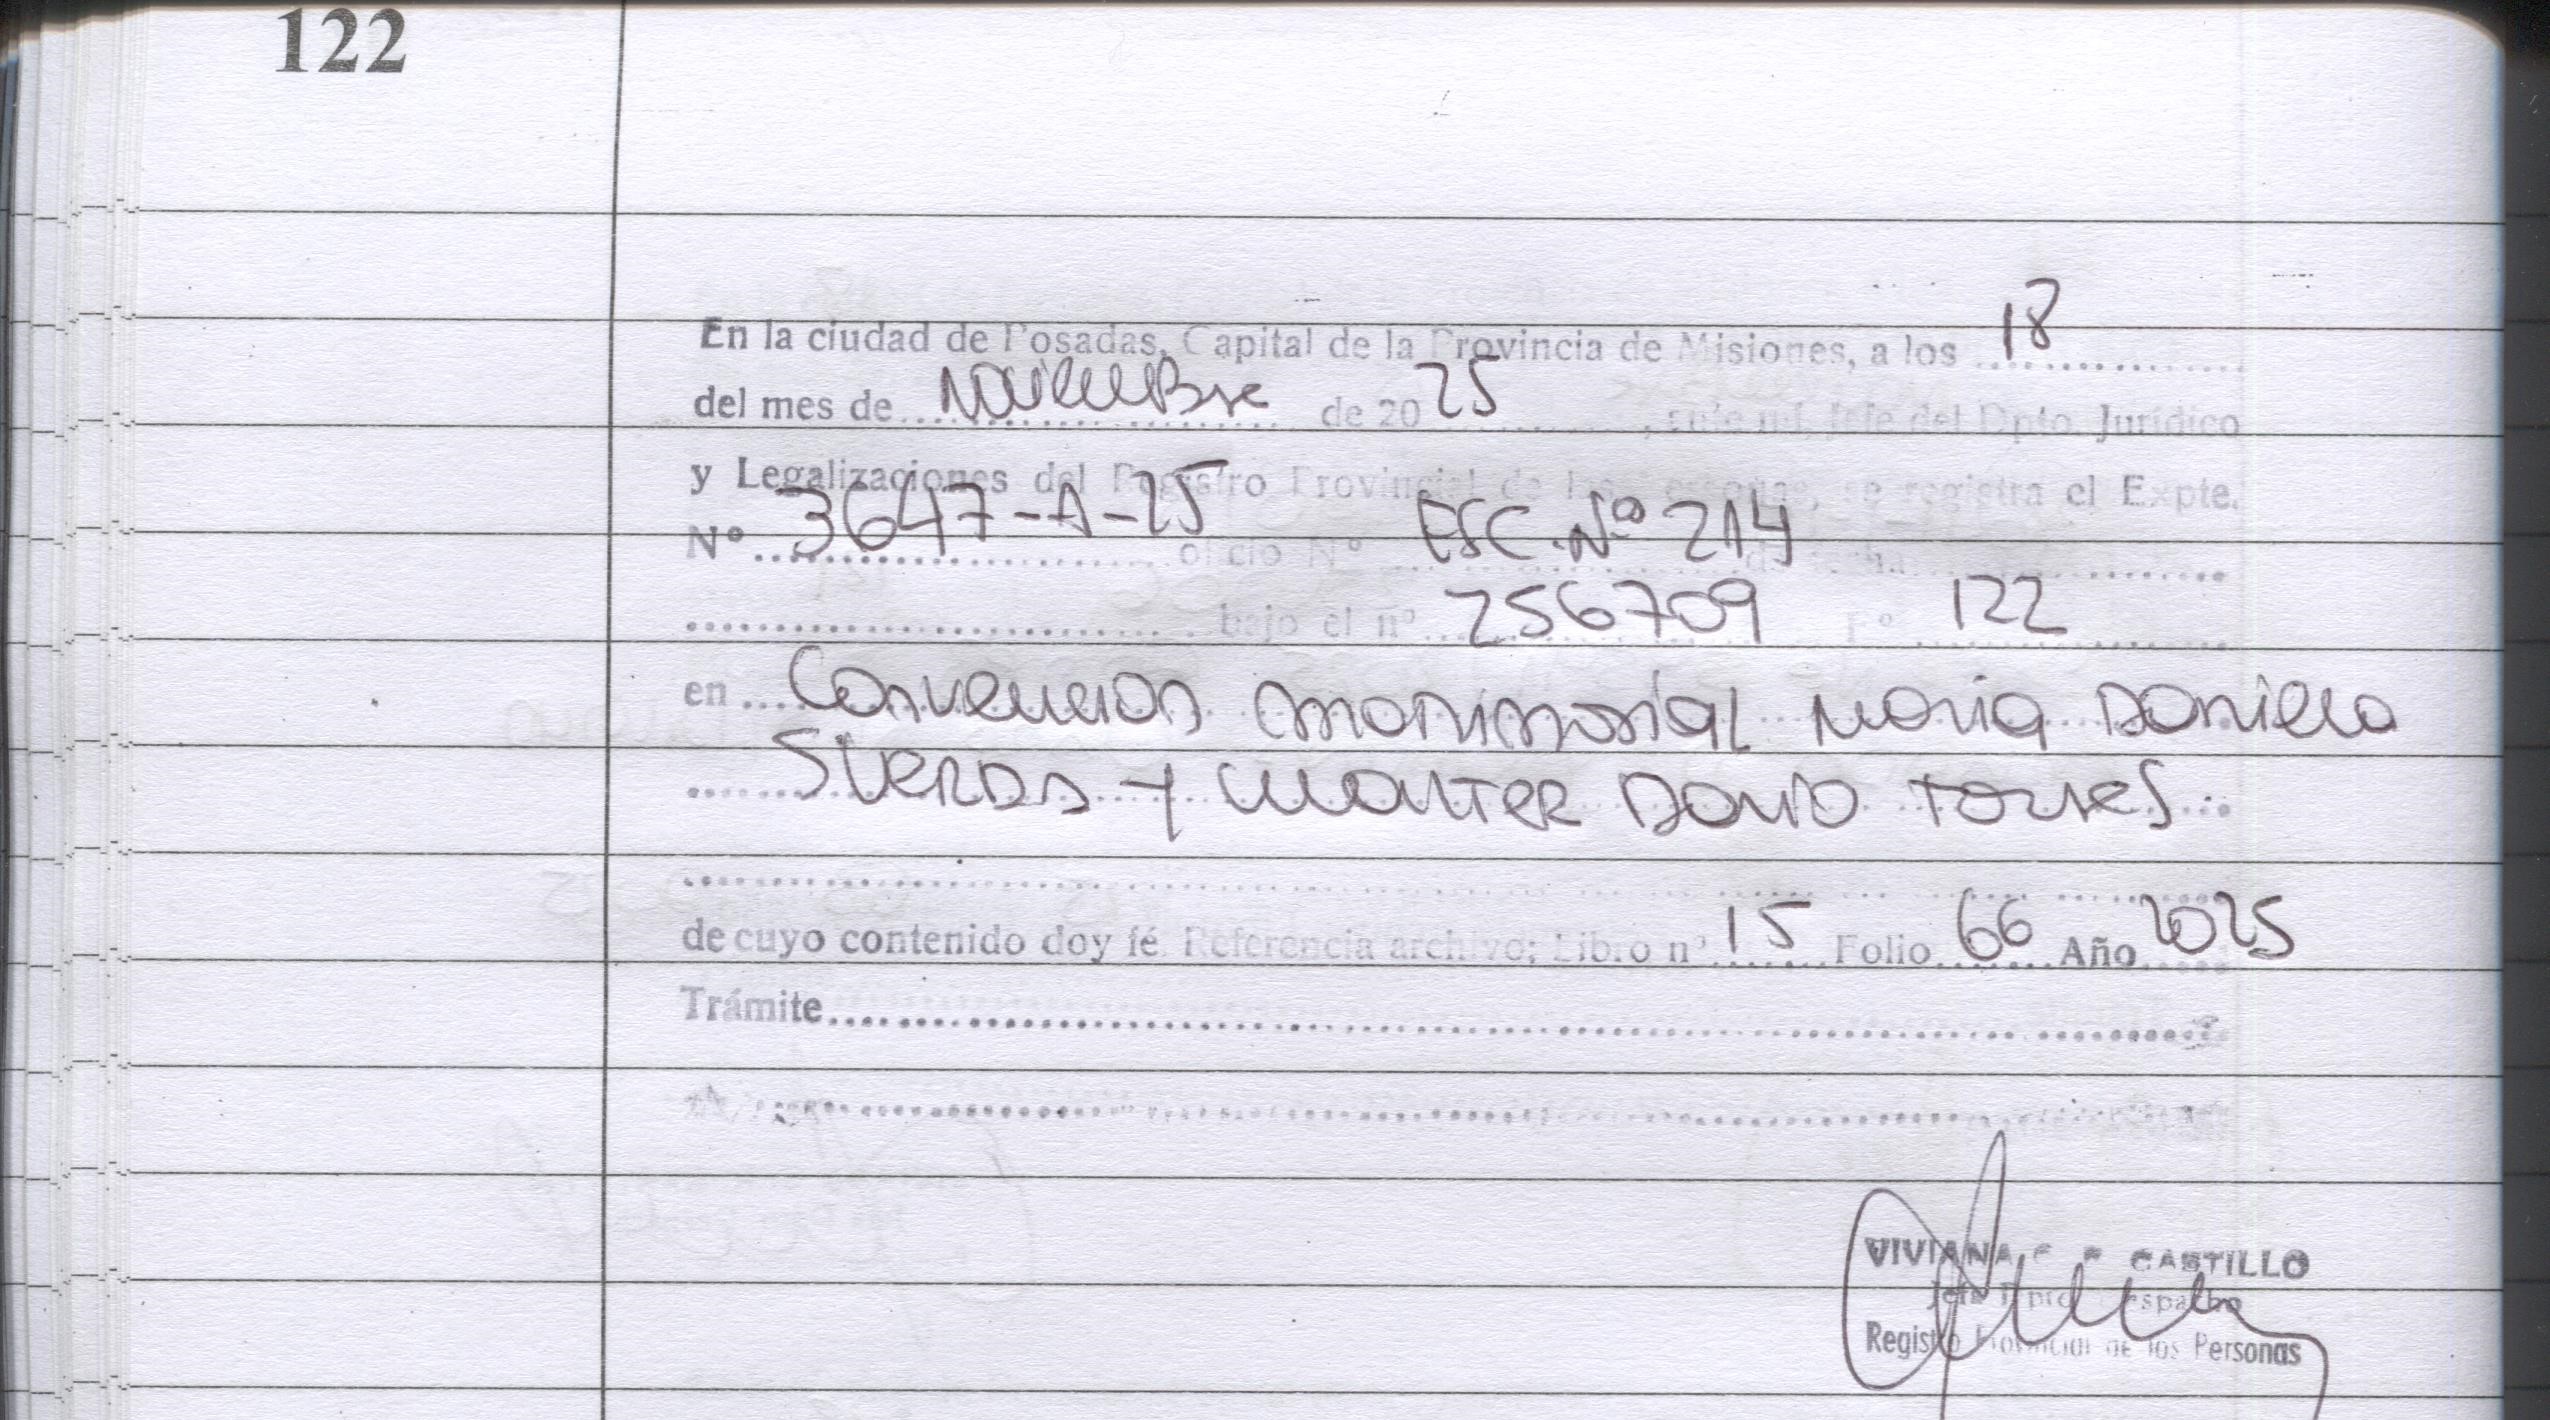 122
En la ciudad de Posadas, Capital de la Provincia de Misiones, a los 18
del mes de Noviembre de 2025, ante mí, Jefe del Dpto. Jurídico
y Legalizaciones del Registro Provincial de las Personas, se registra el Expte.
Nº 3647-A-25 oficio Nº ESC. Nº 214
bajo el nº 256709 Fº 122
en Convencion matrimonial Maria Daniela
y Walter David Torres
de cuyo contenido doy fé. Referencia archivo: Libro nº 15 Folio 66 Año 2025
Trámite
VIVIANA CASTILLO
Jefe
Registro Provincial de las Personas